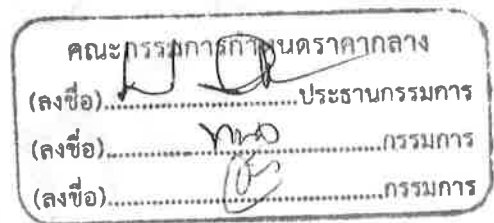 คณะกรรมการกำหนดราคากลาง
(ลงชื่อ)..................................ประธานกรรมการ
(ลงชื่อ)..................................กรรมการ
(ลงชื่อ)..................................กรรมการ